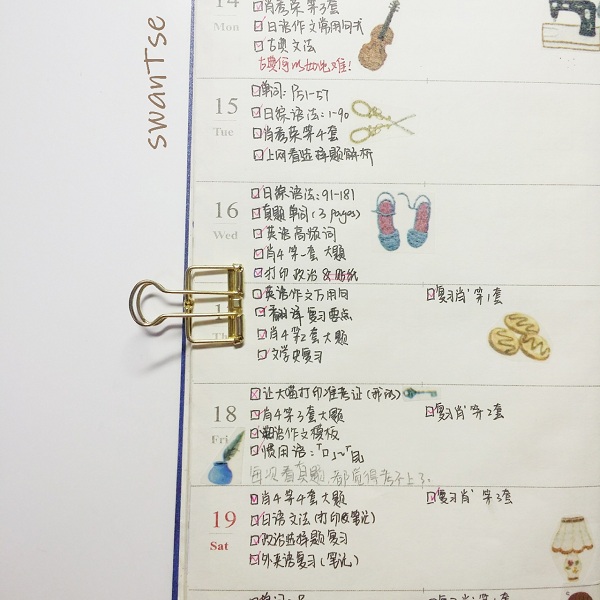 swanTse
14
Mon
肖秀荣第3套
日语作文常用句式
古典文法
古典何以如此难！
15
Tue
单词：P51-57
日综语法：1-90
肖秀荣第4套
上网看选择题解析
16
Wed
日综语法：91-181
真题单词（3 pages）
英语高频词
肖4第一套大题
打印政治&贴纸
英语作文万用句
复习肖'第1套
翻译复习要点
肖4第2套大题
文学史复习
18
Fri
让大喵打印准考证（邢洁）
肖4第3套大题
复习肖'第2套
语作文模板
惯用语：「口」~「目
每次看真题都觉得考不上了。
19
Sat
肖4第4套大题
复习肖'第3套
日语文法（打印&笔记）
政治选择题复习
外来语复习（笔记）